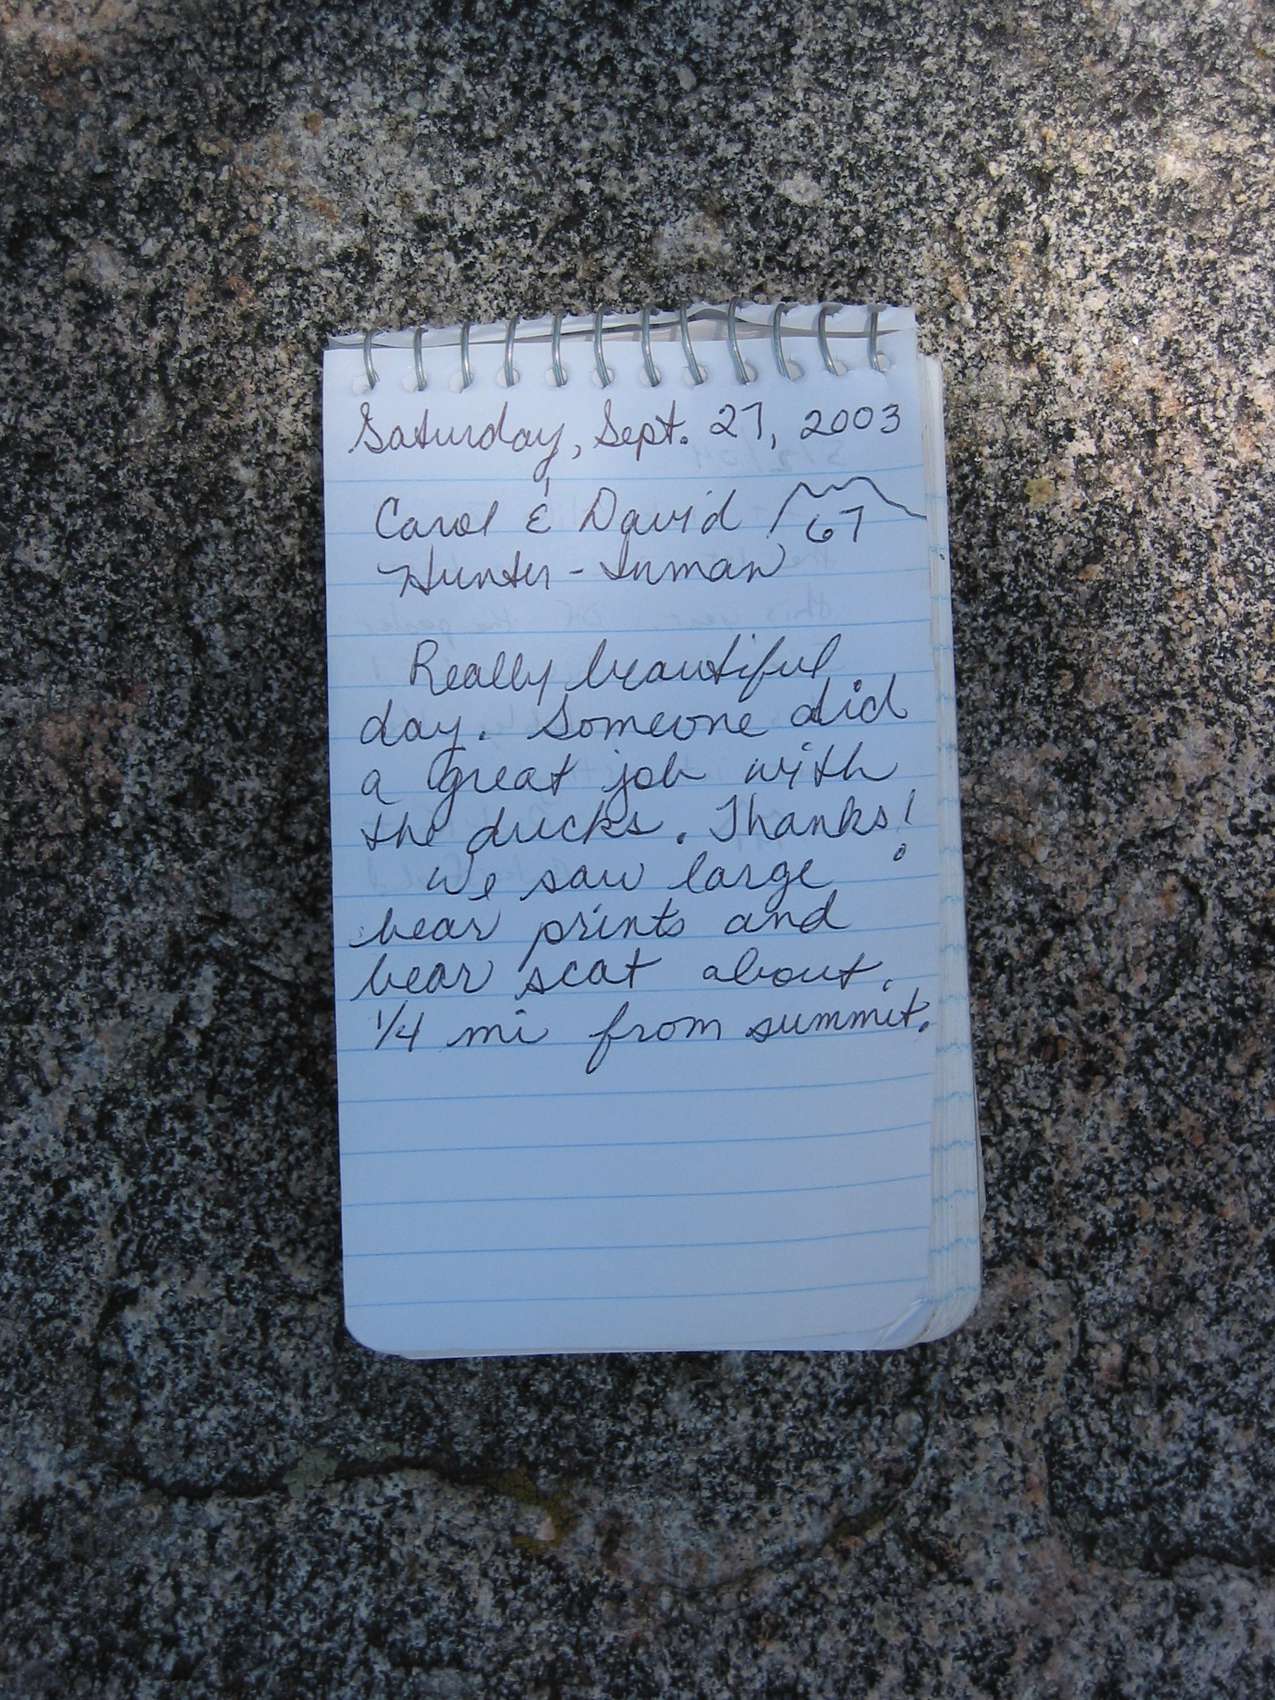 Saturday, Sept. 27, 2003
Carol & David 67
Hunter-Inman
Really beautiful
day. Someone did
a great job with
the ducks. Thanks!
We saw large
bear prints and
bear scat about
1/4 mi from summit.